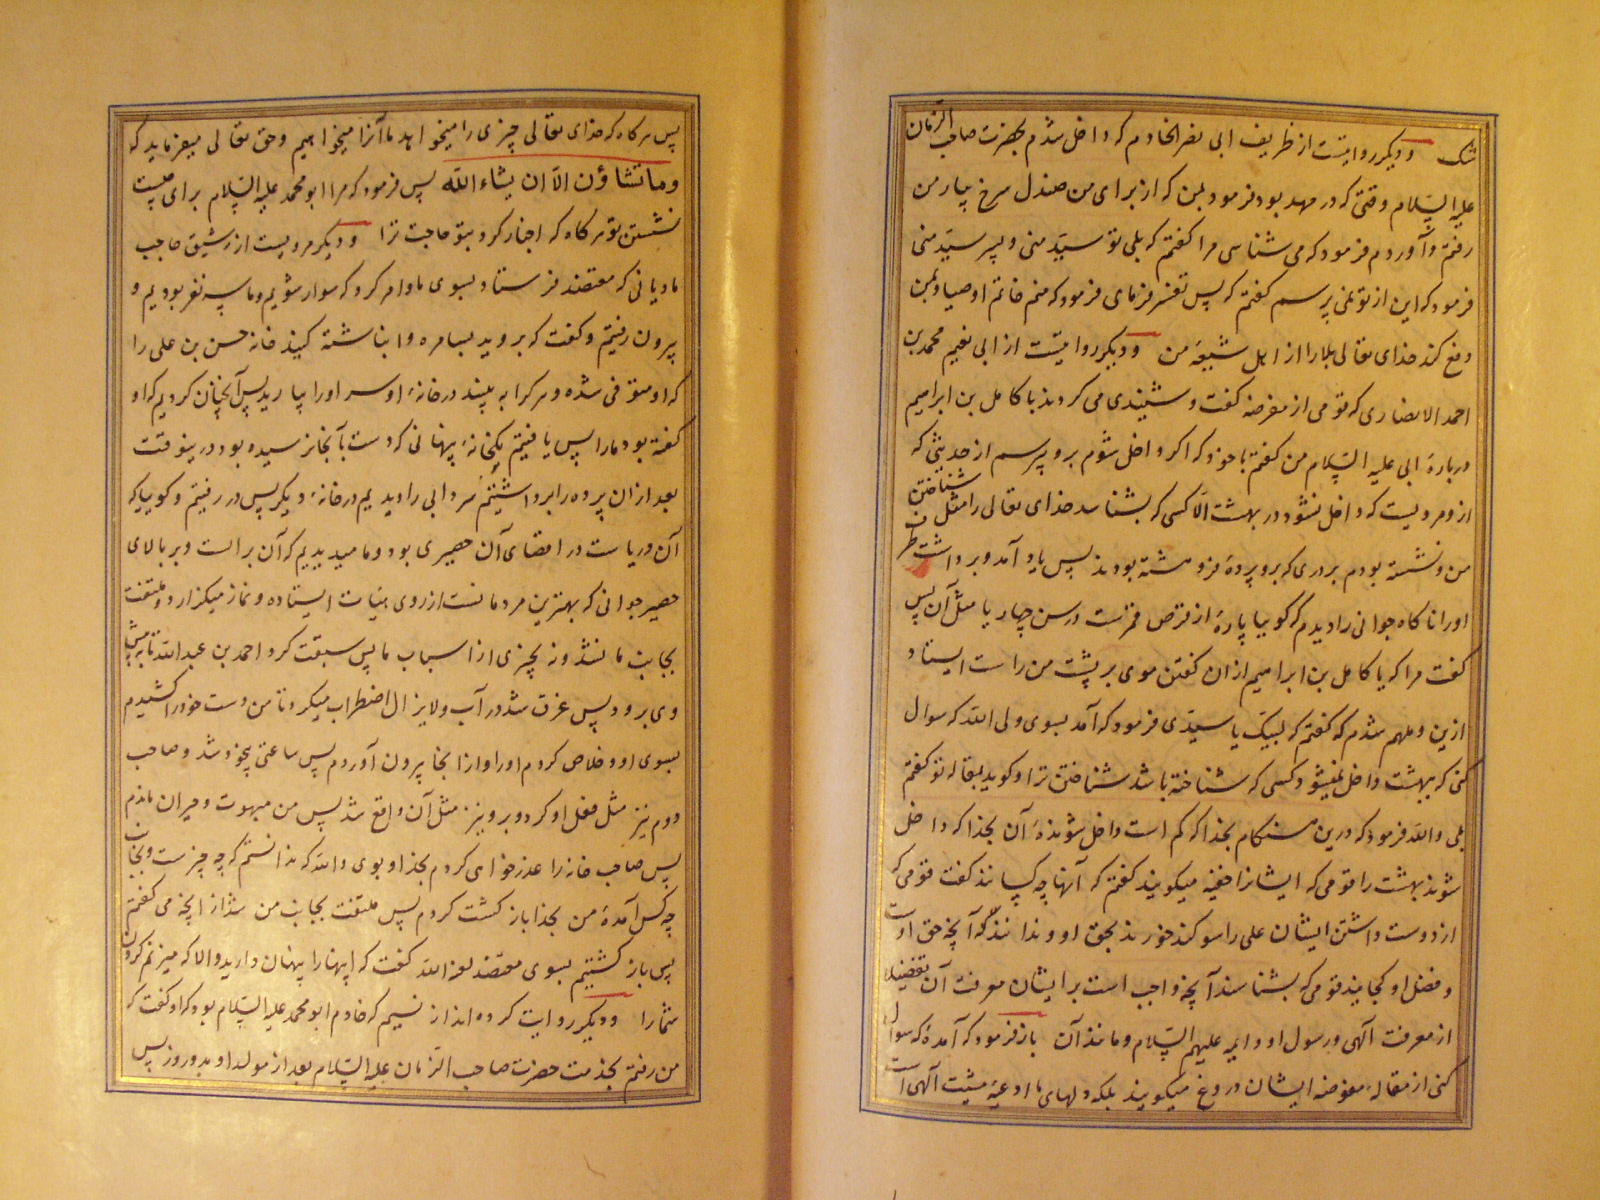 شک و دیگر روایتست از ظریف ابی نصر الخادم که داخل شدم بحضرت صاحب الزمان
علیه السّلام وقتی که در مهد بود فرمود بمن که از برای من صندل سرخ بیار من
رفتم و آوردم فرمود که می شناسی مرا گفتم که بلی تو سیّد منی و پسر سیّد منی
فرمود که این از تو نمی پرسم گفتم که پس تفسیر فرمای فرمود که منم خاتم اوصیا و بمن
دفع کند خدای تعالی بلا را از اهل شیعهٔ من و دیگر روایتست از ابی نعیم محمد بن
احمد الانصاری که قومی از مفوضه گفت و شنیدی می کردند با کامل بن ابراهیم
دربارهٔ ابی علیه السّلام من گفتم با خود که اگر داخل شوم برو پرسم از حدیثی که
ازو مرویست که داخل نشود در بهشت الّا کسی که بشناسد خدای تعالی را مثل شناختن
من و نشسته بودم بر دری که برو پردهٔ فرو هشته بودند پس باد آمد و برداشت طرف
او را ناگاه جوانی را دیدم که گوییا پارهٔ از قرص قمرست در سن چهار یا مثل آن پس
گفت مرا که یا کامل بن ابراهیم از آن گفتن موی بر پشت من راست ایستاد
ازین و ملهم شدم که گفتم که لبیک یا سیّدی فرمود که آمدٔ بسوی ولی الله که سوال
کنی که ببهشت داخل نمیشود کسی که شناخته باشد شناختن ترا و گوید بمقاله تو گفتم
بلی والله فرمود که درین هنگام بخدا که کم است داخل شوندهٔ آن بخدا که داخل
شوند بهشت را قومی که ایشانرا حقیه میگویند گفتم که آنها چه کسانند گفت قومی که
از دوست داشتن ایشان علی را سوگند خورند بحق او و ندانند که آنچه حق اوست
و فضل او کجایند قومی که بشناسند آنچه واجب است بر ایشان معرفت آن تفضیلا
از معرفت آلهی و رسول او و ائمه علیهم السّلام و مانند آن باز فرمود که آمدهٔ که سوال
کنی از مقالهٔ مفوضه ایشان دروغ میگویند بلکه دلهای ما اوعیهٔ مشیت آلهی است
پس هر گاه که خدای تعالی چیزی را میخواهد ما آنرا میخواهیم و حق تعالی میفرماید که
وما تشاؤن الّا ان یشاء الله پس فرمود که مرا ابو محمد علیه السّلام برای چیست
نشستن تو هر گاه که اخبار کرد بتو حاجت ترا و دیگر مرویست از رشیق حاجب
مادیانی که معتضد فرستاد بسوی ما و امر کرد که سوار شویم و ما سه نفر بودیم و
بیرون رفتیم و گفت که بروید بسامره و انباشته کنید خانه حسن بن علی را
که او متوفی شده و هر کرا به بینید در خانهٔ او سر او را بیارید پس آنچنان کردیم که او
گفته بود ما را پس یافتیم یکخانهٔ پنهانی که دست بآنجا نرسیده بود درینوقت
بعد از آن پرده را برداشتیم سردابی را دیدیم در خانهٔ دیگر پس در رفتیم و گوییا که
آن دریاست در اقصای آن حصیری بود و ما میدیدیم که آن بر آبست و بر بالای
حصیر جوانی که بهترین مردمانست از روی هیئات ایستاده و نماز میگزارد و ملتفت
بجانب ما نشد و نه بچیزی از اسباب ما پس سبقت کرد احمد بن عبدالله تا به پیش
وی برود پس غرق شد در آب و لایزال اضطراب میکرد تا من دست خود را کشیدم
بسوی او و خلاص کردم او را و از آنجا بیرون آوردم پس ساعتی بیخود شد و صاحب
دوم نیز مثل فعل او کرد و برو نیز مثل آن واقع شد پس من مبهوت و حیران ماندم
پس صاحب خانه را عذر خواهی کردم بخدا و بوی والله که ندانستم که چه چیزست و بجانب
چه کس آمدهٔ من بخدا باز گشت کردم پس ملتفت بجانب من نشد از آنچه می گفتم
پس باز گشتیم بسوی معتضد لعنه الله گفت که اینها را پنهان دارید و الا که میزنم گردن
شما را و دیگر روایت کرده اند از نسیم که خادم ابو محمد علیه السّلام بود که او گفت که
من رفتم بخدمت حضرت صاحب الزمان علیه السّلام بعد از مولد او بدو روز پس